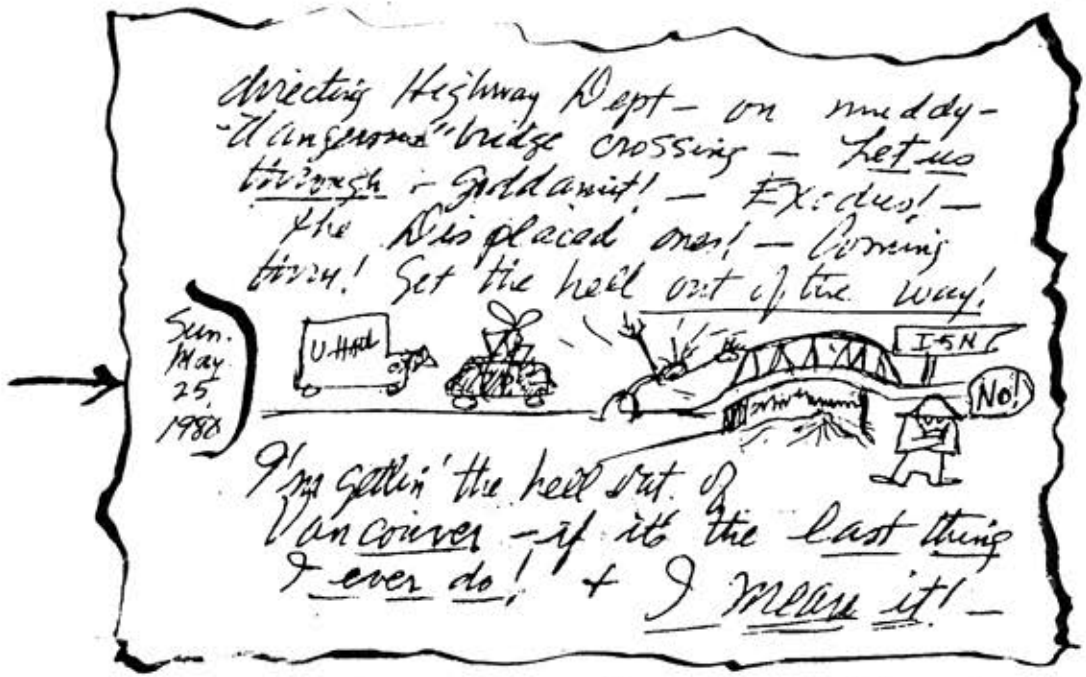 directing Highway Dept – on muddy –
"dangerous" bridge crossing – Let us
through – Goddamit! – Exodus! –
the Displaced ones! – Coming
thru! Get the hell out of the way!
Sun.
May
25,
1980
U-HAUL
I-5N
NO!
I'm gettin' the hell out of
Vancouver – if it's the last thing
I ever do! + I mean it! –